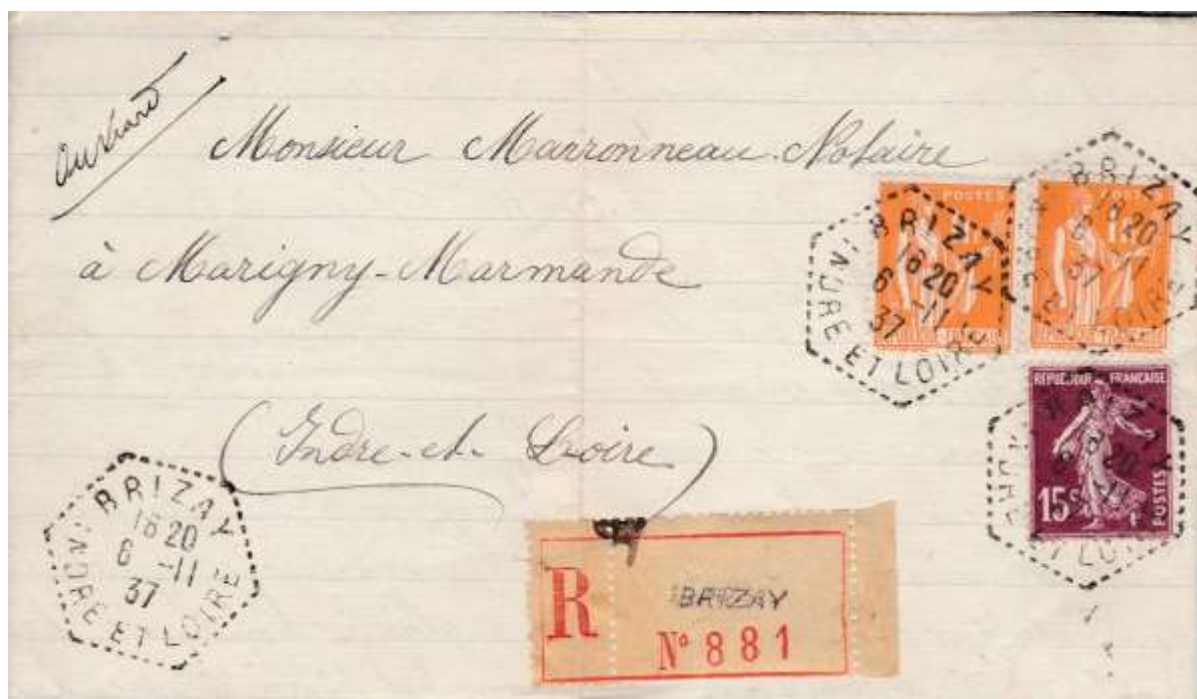 Monsieur Marronneau. Notaire
à Marigny-Marmande
(Indre-et-Loire)
POSTES
POSTES
1F
BRIZAY
18 20
6 -11
37
INDRE ET LOIRE
BRIZAY
18 20
6 -11
37
INDRE ET LOIRE
RÉPUBLIQUE FRANÇAISE
15c
POSTES
BRIZAY
18 20
6 -11
37
INDRE ET LOIRE
R
BRIZAY
N° 881